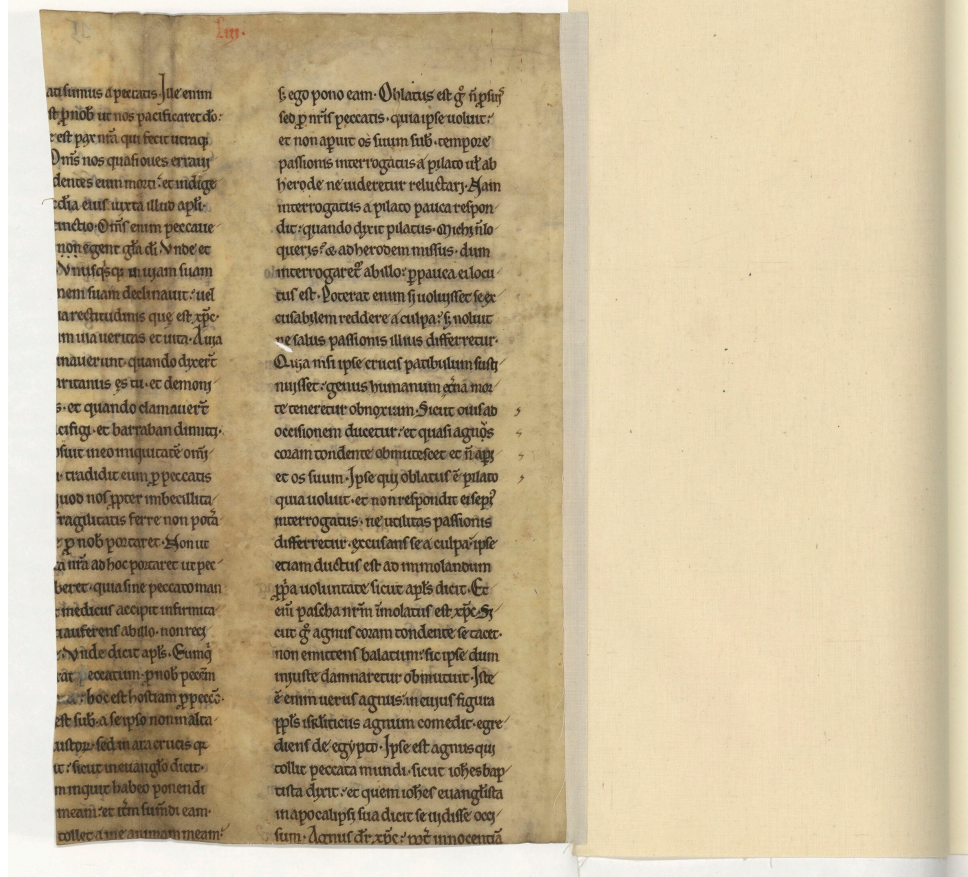 Liii.
ati sumus a peccatis. Ille enim
st ꝑ nob ut nos pacificaret do:
est pax nrā qui fecit utraq
Om̄s nos quasi oues erraui
dentes eum morti: et indige
dia eius iuxta illud apli.
tinctio. Om̄s enim peccaue
non egent gl̄a di. Vnde et
Vnusqsq in uiam suam
nem suam declinauit: uel
ia rectitudinis que est xpc.
m uia ueritas et uita. A uia
inauerunt. quando dyxert̄
aritanus es tu. et demoni
s. et quando clamauert̄
cifigi. et barraban dimitti.
osuit in eo iniquitatē om̄i
tradidit eum ꝓ peccatis
quod nos ꝓpter imbecillita
fragilitatis ferre non potā
ꝓ nob portaret. Non ut
nrā ad hoc portaret ut pec
beret. quia sine peccato man
medicus accipit infirmita
auferens ab illo. non reci
Vnde dicit apls. Eum q̇
peccatum. ꝓ nob peccm̄
hoc est hostiam ꝓ peccō.
est sub. a se ipso non in alta
sed in ara crucis q
it: sicut in euanglō dicit.
m inquit habeo ponendi
meam: et itm̄ sumdi eam.
tollet a me animam meam:
s; ego pono eam. Oblatus est gͦ n̄ p sui
sed ꝓ nris peccatis. quia ipse uoluit:
et non apuit os suum sub. tempore
passionis interrogatus a pilato ul̄ ab
herode ne uideretur reluctari. Nam
interrogatus a pilato pauca respon
dit: quando dyxit pilatus. Michi n̄ lo
queris? & ad herodem missus. dum
interrogaret᷑ ab illo: ꝑpauca ei locu
tus est. Poterat enim si uoluisset se ex
cusabilem reddere a culpa: s; noluit
ne salus passionis illius differretur.
Quia nisi ipse crucis patibulum susti
nuisset: genus humanum et̄na mor
te teneretur obnoxium. Sicut ouis ad
occisionem ducetur: et quasi agnos
coram tondente obmutescet et n̄ api
et os suum. Ipse qui oblatus ē pilato
quia uoluit. et non respondit ei sepi᷑
interrogatus. ne utilitas passionis
differretur. excusans se a culpa: ipse
etiam ductus est ad immolandum
ꝓp̄a uoluntate sicut apls dicit. Et
eni᷑ pascha nrm̄ īmolatus est xpc. Si
cut gͦ agnus coram tondente se tacet.
non emittens balatum: sic ipse dum
iniuste damnaretur obmutuit. Iste
ē enim uerus agnus: in cuius figura
ppls isrl̄iticus agnum comedit. egre
diens de egypto. Ipse est agnus qui
tollit peccata mundi. sicut iohes bap
tista dyxit: et quem iohes euanglista
in apocalipsi sua dicit se uidisse occi
sum. Agnus dr̄ xpc: innocentiā